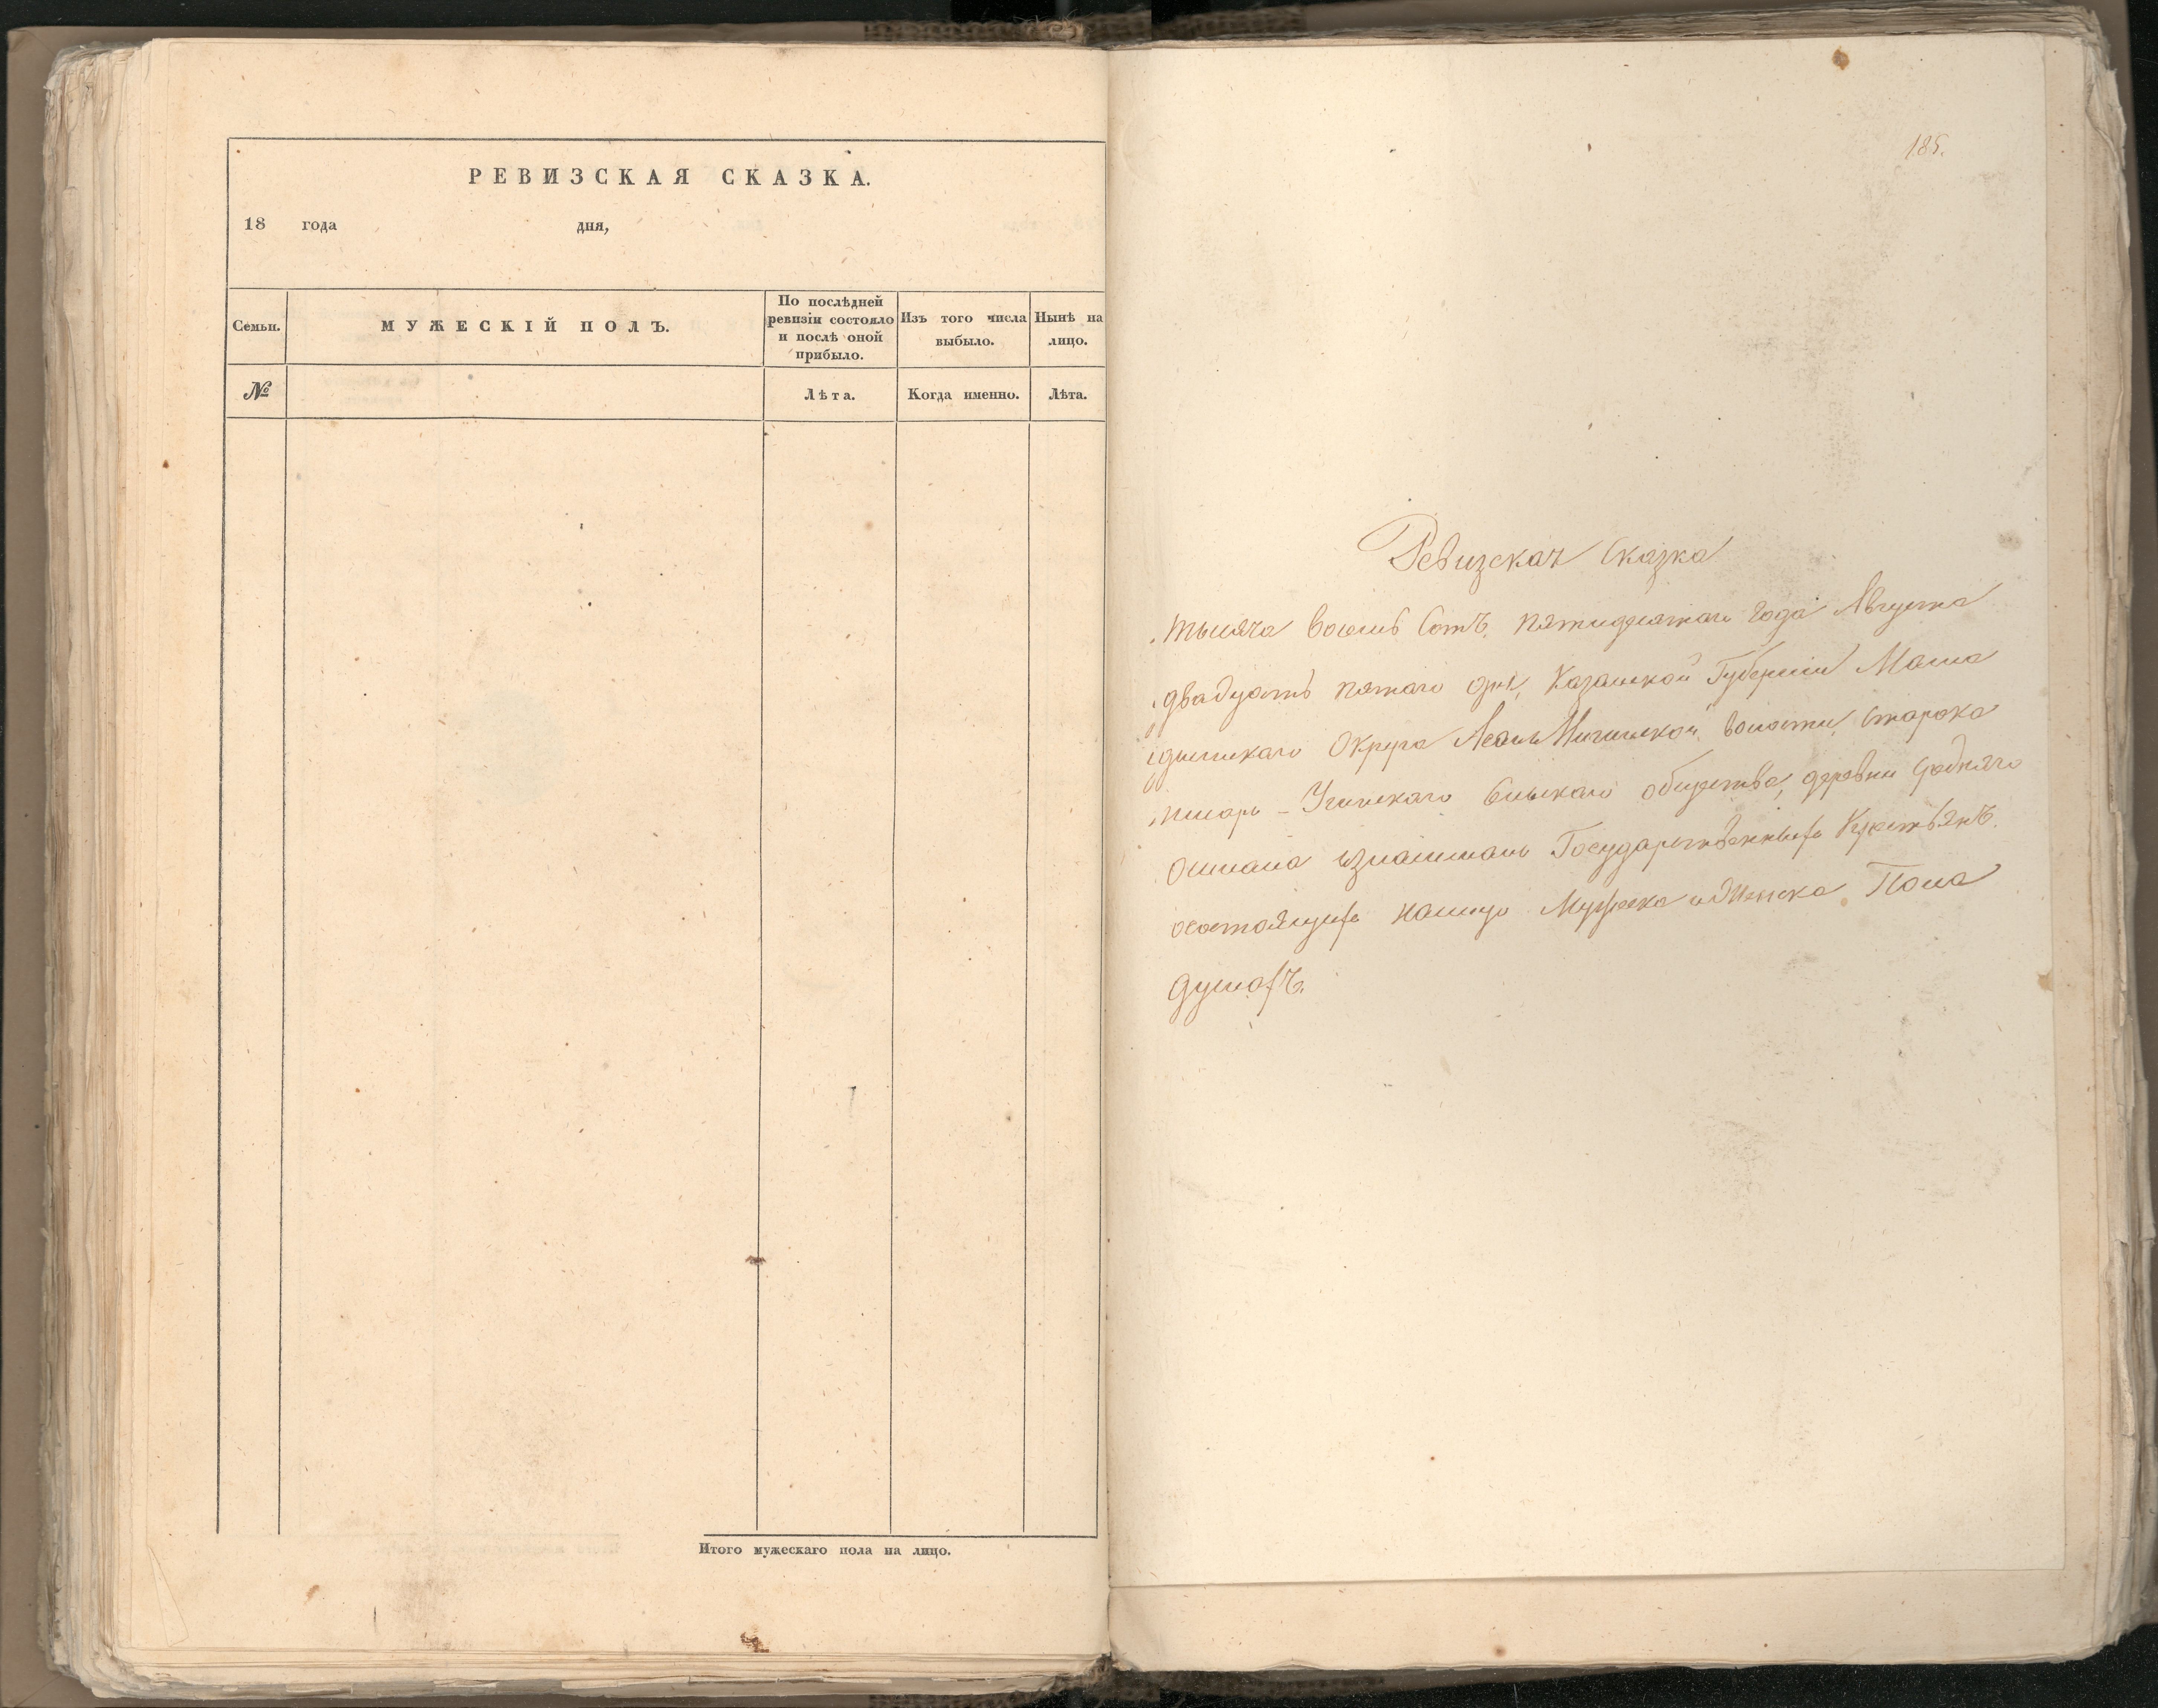 РЕВИЗСКАЯ СКАЗКА.
18 года дня,
Семьи.
МУЖЕСКІЙ ПОЛЪ.
По послѣдней
ревизіи состояло
и послѣ оной
прибыло.
Изъ того числа
выбыло.
Нынѣ на
лицо.
№
Лѣта.
Когда именно.
Лѣта.
Итого мужескаго пола на лицо.
185.
Ревизская Сказка
тысяча восемь Сотъ, пятидесятаго года Августа
двадцать пятаго дня, Казанской Губерніи Мама
дышскаго Округа волости, Старока
общества, деревни
Государственныхъ Крестьянъ.
Мужеска и Женска Пола
душахъ.